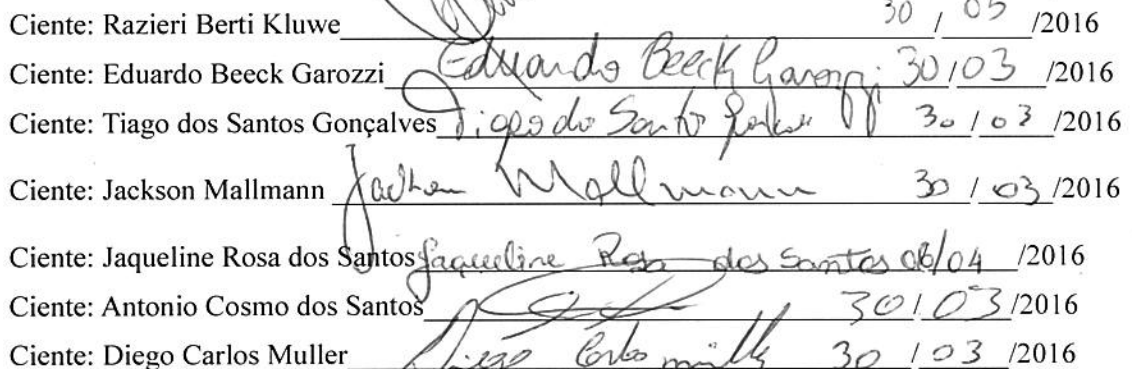 Ciente: Razieri Berti Kluwe 30 / 05 /2016
Ciente: Eduardo Beeck Garozzi Eduardo Beeck Garozzi 30/03 /2016
Ciente: Tiago dos Santos Gonçalves Tiago do Santo 30 / 03 /2016
Ciente: Jackson Mallmann Jackson Mallmann 30 / 03 /2016
Ciente: Jaqueline Rosa dos Santos Jaqueline Rosa dos Santos 06/04 /2016
Ciente: Antonio Cosmo dos Santos 30/03 /2016
Ciente: Diego Carlos Muller Diego Carlos Müller 30 / 03 /2016